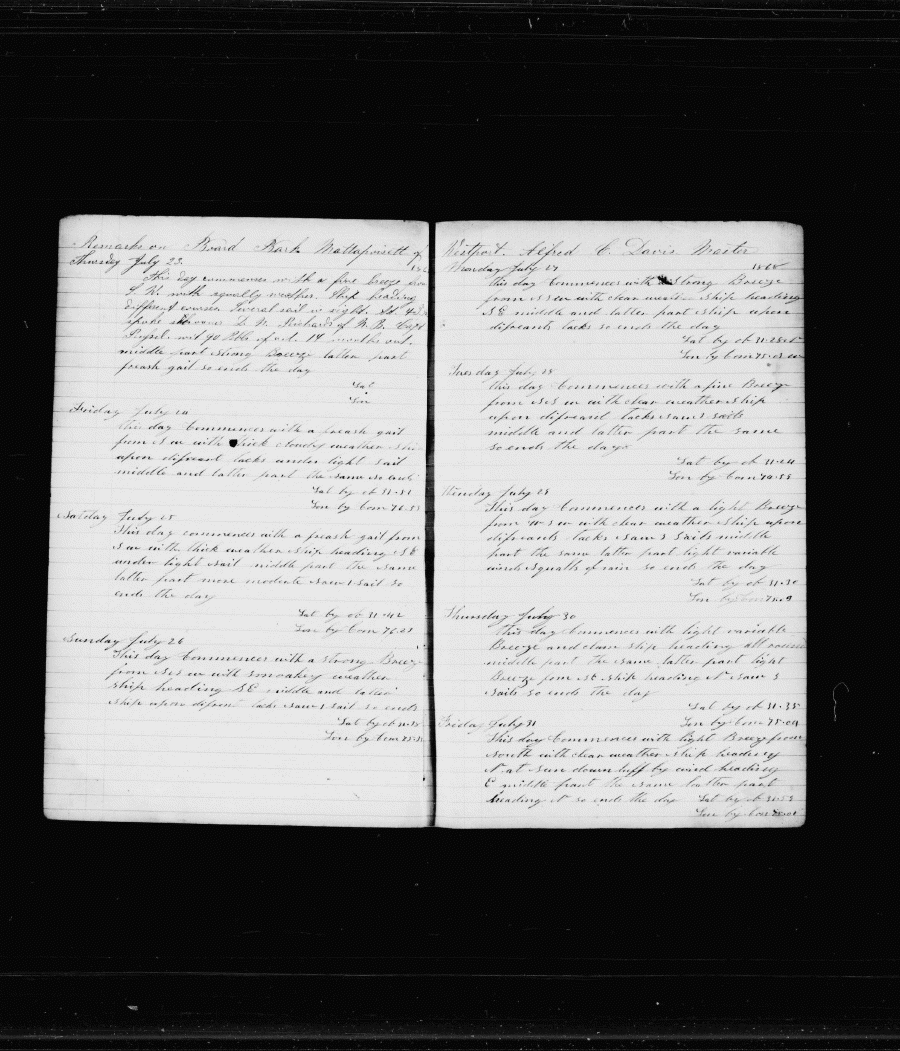 Remarks on Board Bark Mattapoisett of
Thursday July 23.
This day commences with a fine breeze from
S W. with squally weather. Ship heading
different courses Several sail in sight. At
spoke of N. B. Capt
90 bbls of oil. 14 months out.
middle part strong Breeze latter part
freash gail so ends the day
Lat
Lon
Friday July 24
this day Commences with a freash gail
from S W with thick cloudy weather Ship
upon difreant tacks under light sail
middle and latter part the same so ends
Lat by ob 31-51
Lon by Crom 76-53
Satday July 25
This day commences with a freash gail from
S W with thick weather Ship heading S E
under light sail middle part the same
latter part more moderate saw 1 sail so
ends the day
Lat by ob 31-42
Lon by Crom 76-21
Sunday July 26
This day Commences with a strong Breeze
from SSW with smoakey weather
Ship heading SE middle and latter
Ship upon difrent tacks saw 1 sail so ends
Lat by ob
Lon by Crom
Westport. Alfred C. Davis Master
1868
Monday July 27
this day Commences with Strong Breeze
from SSW with clear weather Ship heading
SE middle and latter part Ship upon
difreants tacks so ends the day
Lat by ob
Lon by Crom
Tuesday July 28
this day Commences with a fine Breeze
from SSW with clear weather Ship
upon difreand tacks saw 2 sails
middle and latter part the same
so ends the day
Lat by ob 31-24
Lon by Crom
Wenday July 29
This day Commences with a light Breeze
from WSW with clear weather Ship upon
difreants tacks saw 2 Sails middle
part the same latter part light variable
winds squalls of rain so ends the day
Lat by ob 31-30
Lon by Crom 75-09
Thursday July 30
this day Commences with light variable
Breeze and clam ship heading all round
middle part the same latter part light
Breeze from SE Ship heading N saw 2
sails so ends the day
Lat by ob 31-35
Lon by Crom 75-04
Friday July 31
This day Commences with light Breeze from
North with clear weather Ship heading
N at sun down luff by wind heading
E middle part the same latter part
heading N so ends the day Lat by ob 31-53
Lon by Crom 75-01